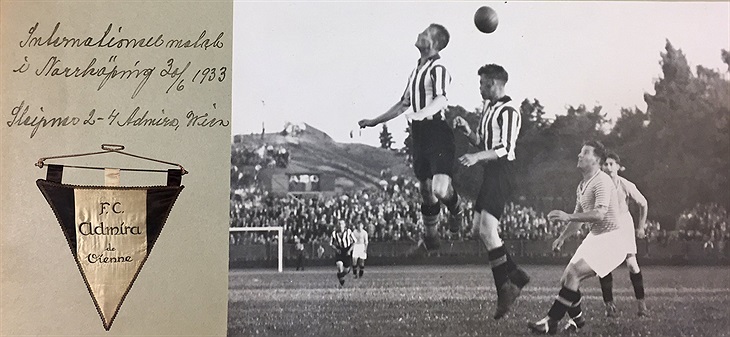 Internationell match
i Norrköping 30/6 1933
Sleipner 2-4 Admira, Wien
F.C.
Admira
de
Vienne